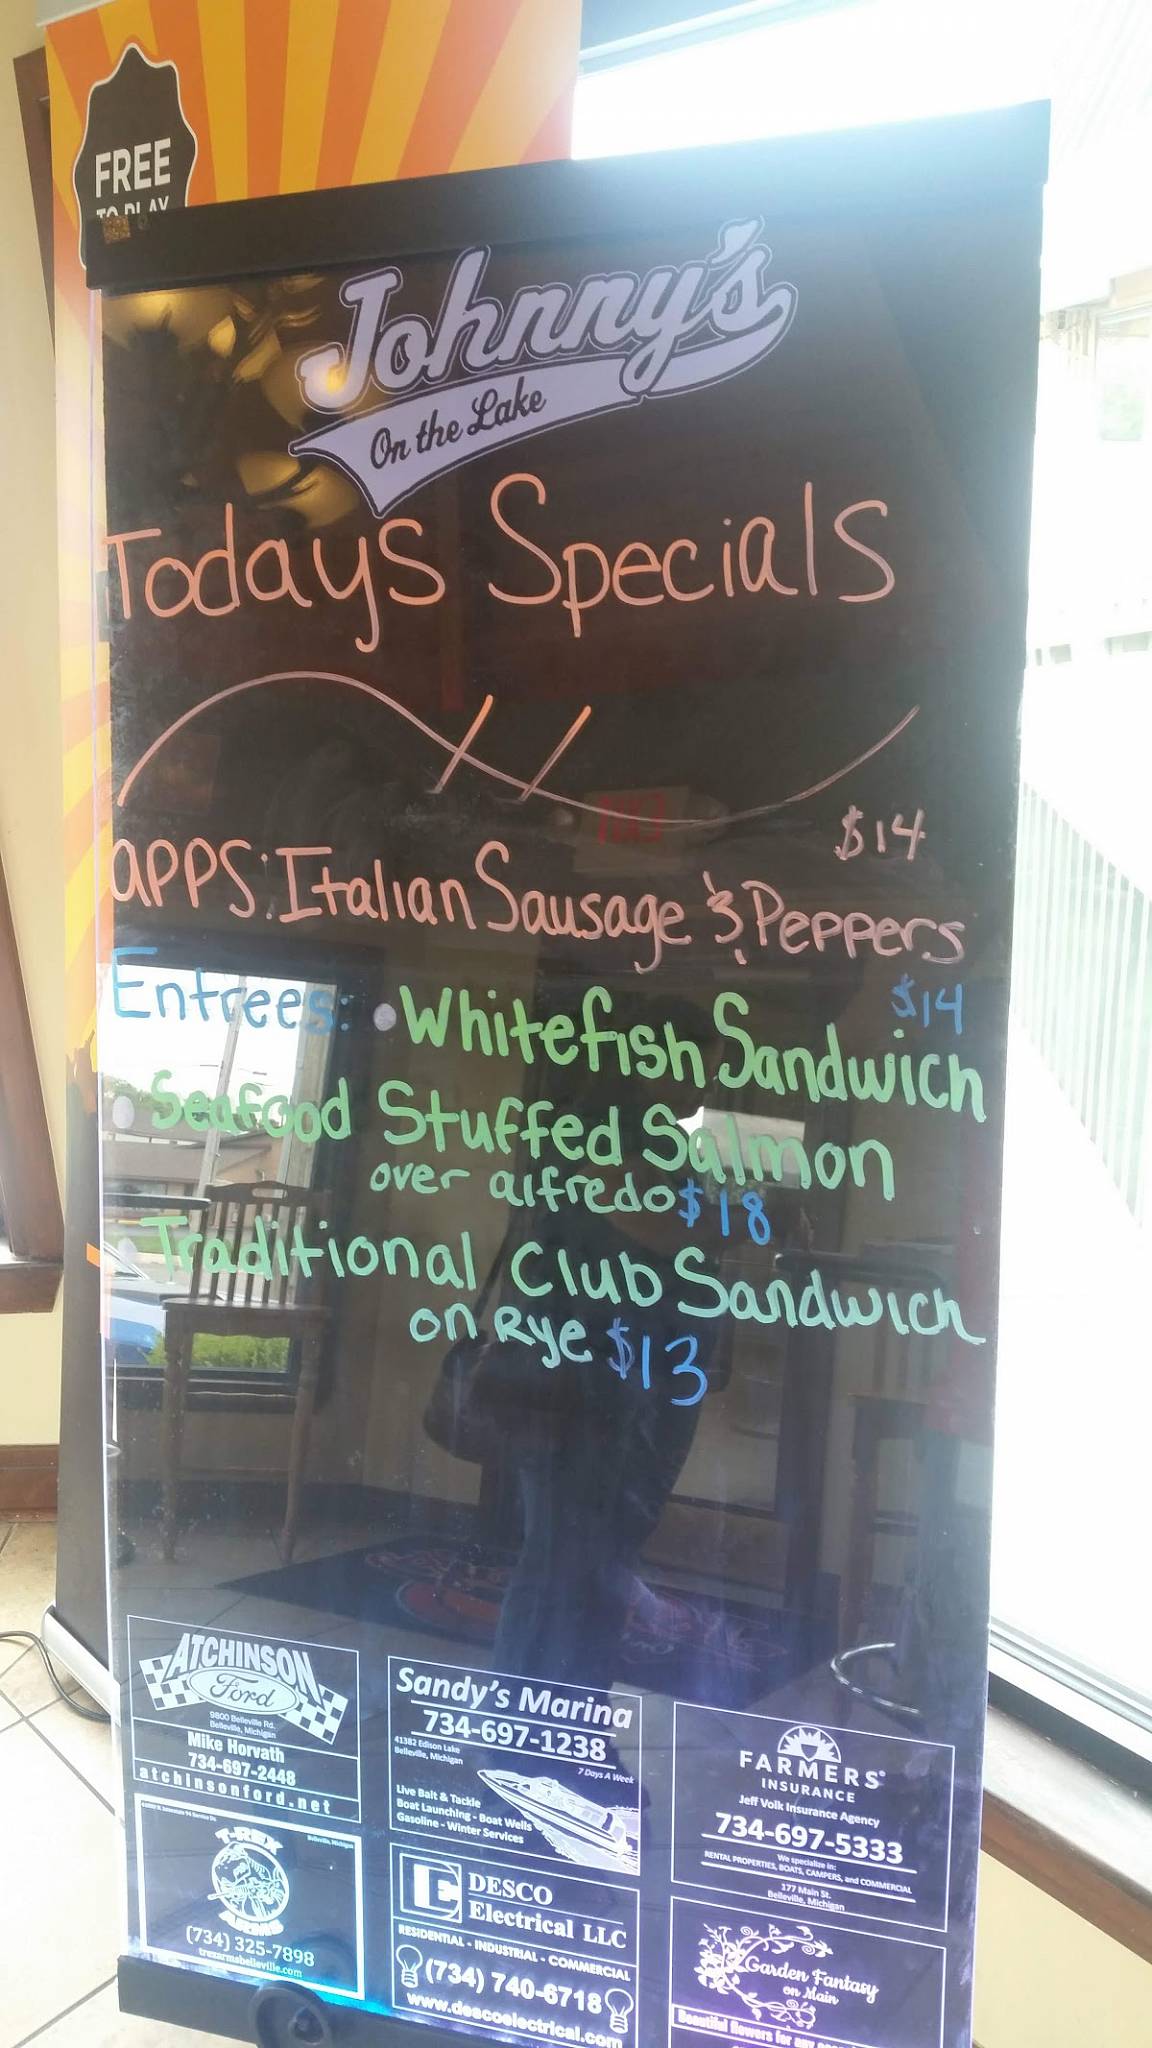 FREE
TO PLAY
Johnny's
On the Lake
Todays Specials
$14
APPS: Italian Sausage & Peppers
$14
Entrees: • Whitefish Sandwich
• Seafood Stuffed Salmon
over alfredo $18
• Traditional Club Sandwich
on Rye $13
ATCHINSON
Ford
9800 Belleville Rd.
Belleville, Michigan
Mike Horvath
734-697-2448
atchinsonford.net
Sandy's Marina
734-697-1238
41382 Edison Lake
Belleville, Michigan
7 Days A Week
Live Bait & Tackle
Boat Launching - Boat Wells
Gasoline - Winter Services
FARMERS
INSURANCE
Jeff Volk Insurance Agency
734-697-5333
We specialize in:
RENTAL PROPERTIES, BOATS, CAMPERS, and COMMERCIAL
177 Main St.
Belleville, Michigan
Belleville, Michigan
T-REX
ARMS
(734) 325-7898
trexarmsbelleville.com
DESCO
Electrical LLC
RESIDENTIAL - INDUSTRIAL - COMMERCIAL
(734) 740-6718
www.descoelectrical.com
Garden Fantasy
on Main
Beautiful flowers for any